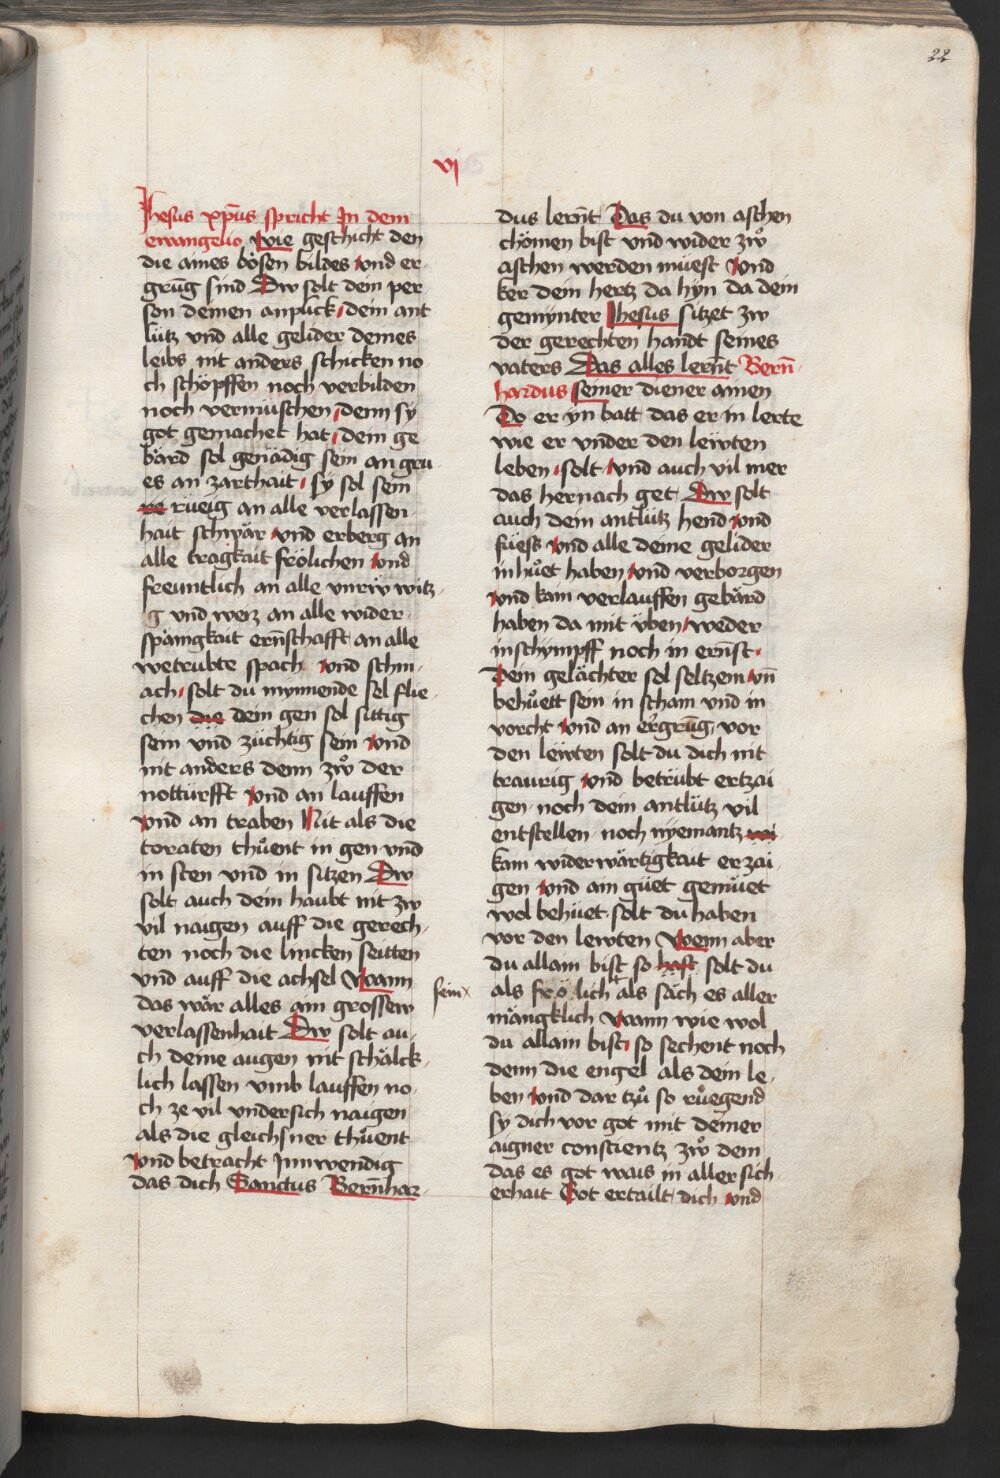 22
vj
Jhesus xp̄us spricht Jn dem
ewangelio wie geschicht den
die aines bösen bildes vnd er
grūg sind Dw solt dein per
son deinen anplick dein ant
lütz vnd alle gelider deines
leibs nit anders schicken no
ch schöpffen noch verbilden
noch vermüschen denn sy
got gemachet hat dein ge
bärd sol genädig sein an gru
es an zarthait sy sol sein
rüeig an alle verlassen
hait schwär vnd erberg an
alle tragkait frölichen vnd
freuntlich an alle vnrẘ witz
g vnd weiz an alle wider
spänigkait ern̄schafft an alle
wetrubte spach vnd schm
ach solt du mynnende sel flie
chen die dein gen sol sittig
sein vnd züchtig sein vnd
nit anders denn zẘ der
nottürfft vnd an lauffen
vnd an traben Nit als die
toraten thůent in gen vnd
in sten vnd in sitzen Dw
solt auch dein haubt nit zw
vil naigen auff die gerech
ten noch die lincken seitten
vnd auff die achsel Wann
das wär alles ain grossew
verlassenhait Dw solt au
ch deine augen nit schälck
lich lassen vmb lauffen no
ch ze vil vndersich naigen
als die gleichsner thůent
vnd betracht Jnnwendig
das dich Sanctus Bern̄har
dus lern̄t Das du von aschen
chömen bist vnd wider zẘ
aschen werden müest vnd
ker dein hertz da hyn da dein
gemynter Jhesus sitzet zw
der gerechten handt seines
vaters Das alles lern̄t Bern̄
hardus seiner diener ainen
Do er yn batt das er in lerte
wie er vnder den lewten
leben solt vnd auch vil mer
das hernach get Dw solt
auch dein antlütz hend vnd
füess vnd alle deine gelider
in hůet haben vnd verborgen
vnd kain verlauffen gebärd
haben da mit vben weder
in schympff noch in ern̄st
Dein gelächter sol seltzem vn̄
behůett sein in scham vnd in
vorcht vnd an ergrūg vor
den lewten solt du dich nit
traurig vnd betrübt ertzai
gen noch dein antlütz vil
entstellen noch nyemantz
kain widerwärtzigkait erzai
gen vnd ain güet gemůet
wol behüet solt du haben
vor den lewten Wenn aber
du allain bist so hast solt du
sein
als frölich als säch es aller
mängklich Wann wie wol
du allain bist so sechent noch
denn die engel als dein le
ben vnd dar tzů so růegend
sy dich vor got mit deiner
aigner conscientz zẘ dem
das es got wais in aller sich
erhait Got ertailt dich vnd